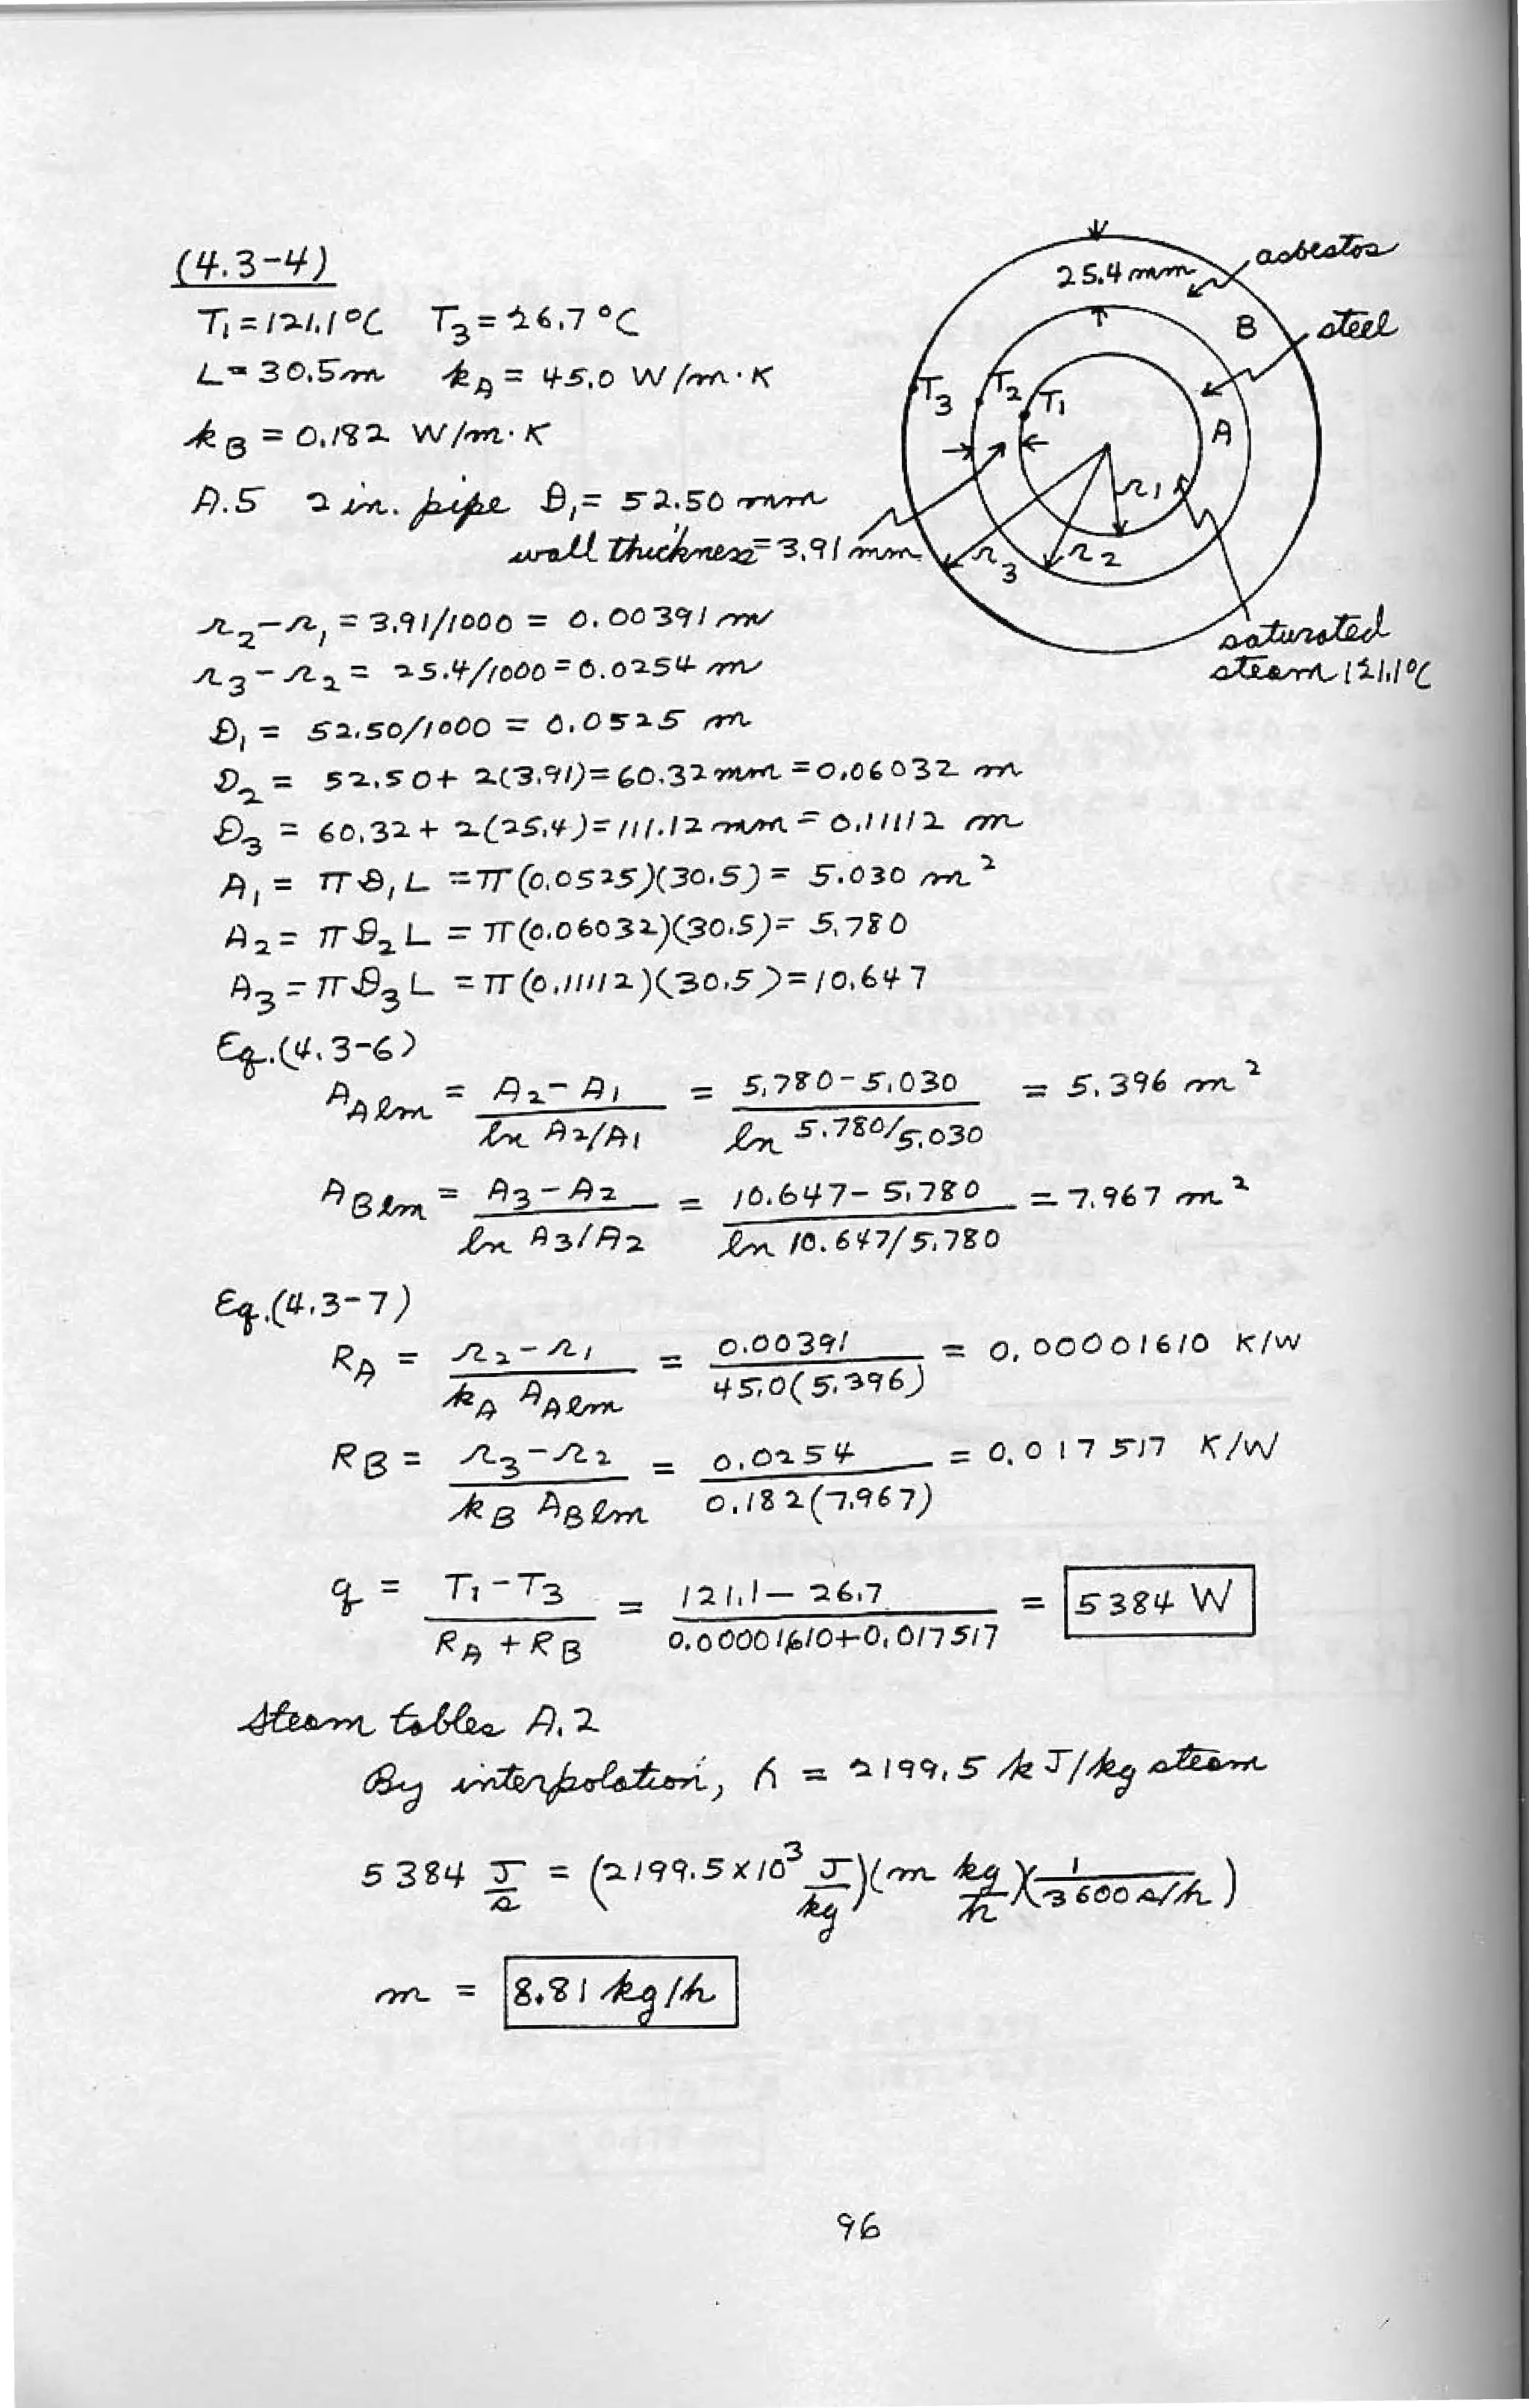 (4.3-4)
T₁ = 121.1°C T₃ = 26.7 °C
L = 30.5 m k_A = 45.0 W/m·K
k_B = 0.182 W/m·K
A.5 2 in. pipe D₁ = 52.50 mm
wall thickness = 3.91 mm
25.4 mm
asbestos
B
steel
T₃ T₂ T₁
A
r₁
r₃ r₂
saturated
steam 121.1°C
r₂ - r₁ = 3.91/1000 = 0.00391 m
r₃ - r₂ = 25.4/1000 = 0.0254 m
D₁ = 52.50/1000 = 0.0525 m
D₂ = 52.50 + 2(3.91) = 60.32 mm = 0.06032 m
D₃ = 60.32 + 2(25.4) = 111.12 mm = 0.11112 m
A₁ = π D₁ L = π (0.0525)(30.5) = 5.030 m²
A₂ = π D₂ L = π (0.06032)(30.5) = 5.780
A₃ = π D₃ L = π (0.11112)(30.5) = 10.647
Eq. (4.3-6)
A_A lm = (A₂ - A₁) / (ln A₂/A₁) = (5.780 - 5.030) / (ln 5.780/5.030) = 5.396 m²
A_B lm = (A₃ - A₂) / (ln A₃/A₂) = (10.647 - 5.780) / (ln 10.647/5.780) = 7.967 m²
Eq. (4.3-7)
R_A = (r₂ - r₁) / (k_A A_A lm) = 0.00391 / 45.0(5.396) = 0.00001610 K/W
R_B = (r₃ - r₂) / (k_B A_B lm) = 0.0254 / 0.182(7.967) = 0.017517 K/W
q = (T₁ - T₃) / (R_A + R_B) = (121.1 - 26.7) / (0.00001610 + 0.017517) = 5384 W
Steam tables A.2
By interpolation, h = 2199.5 kJ/kg steam
5384 J/s = (2199.5 x 10³ J/kg)(m kg/h)(1/3600 s/h)
m = 8.81 kg/h
96